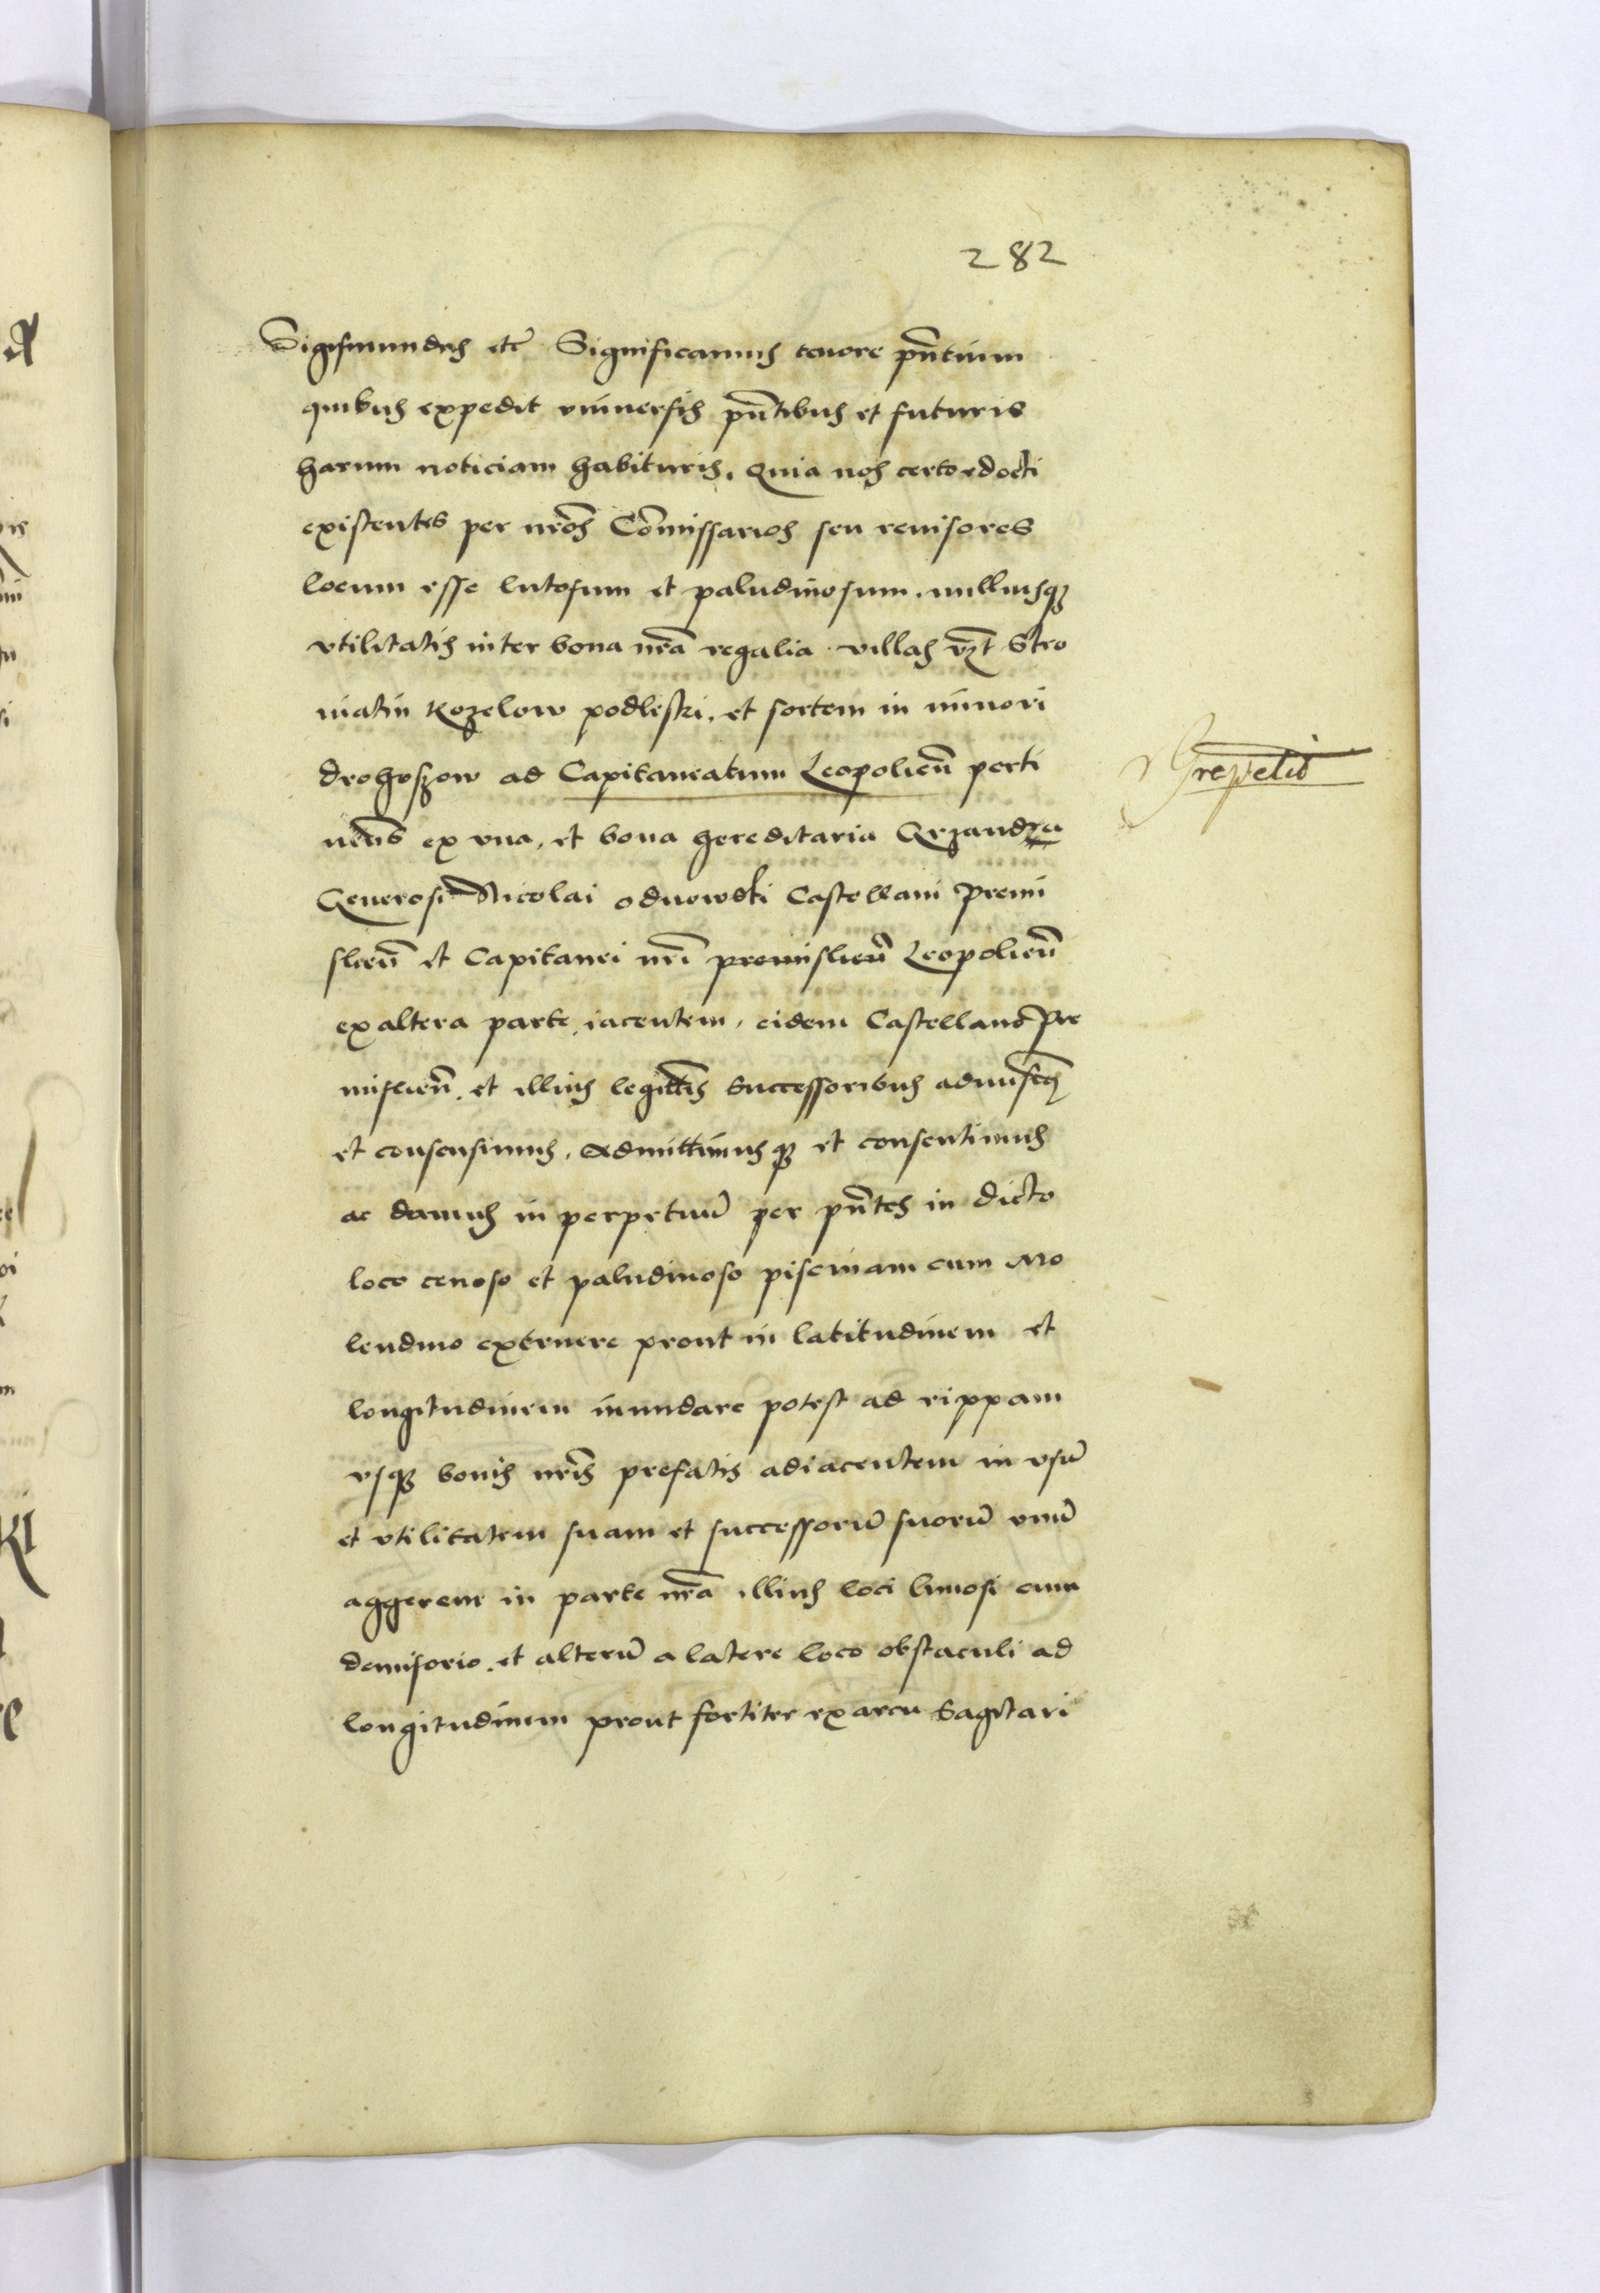 282
Sigismundus etc̃ Significamus tenore pñtium
quibus expedit vniuersis pñtibus et futuris
harum noticiam habituris. Quia nos certo edocti
existentes per nr̃os Com̃issarios seu reuisores
locum esse lutosum et paludinosum. nulliusq3
vtilitatis inter bona nr̃a regalia villas vz̃t Stro
niatin Kozelow podleski. et sortem in minori
drohoszow ad Capitaneatum Leopolieñ perti
neñs ex vna. et bona hereditaria Grzandza
Generosi Nicolai odnowski Castellani Premi
slieñ et Capitanei nr̃i premislieñ Leopolieñ
ex altera parte iacentem. eidem Castellano Pre
mislieñ. et illius legitt̃is Successoribus
et consensimus. Admittimusq3 et consentimus
ac damus in perpetuũ per pñtes in dicto
loco cenoso et paludinoso piscinam cum Mo
lendino extruere prout in latitudinem et
longitudinem inundare potest ad rippam
vsq3 bonis nr̃is prefatis adiacentem in vsũ
et vtilitatem suam et successorũ suorũ vnũ
aggerem in parte nr̃a illius loci limosi cum
demisorio. et alterũ a latere loco obstaculi ad
longitudinem prout fortiter ex arcu Sagitari